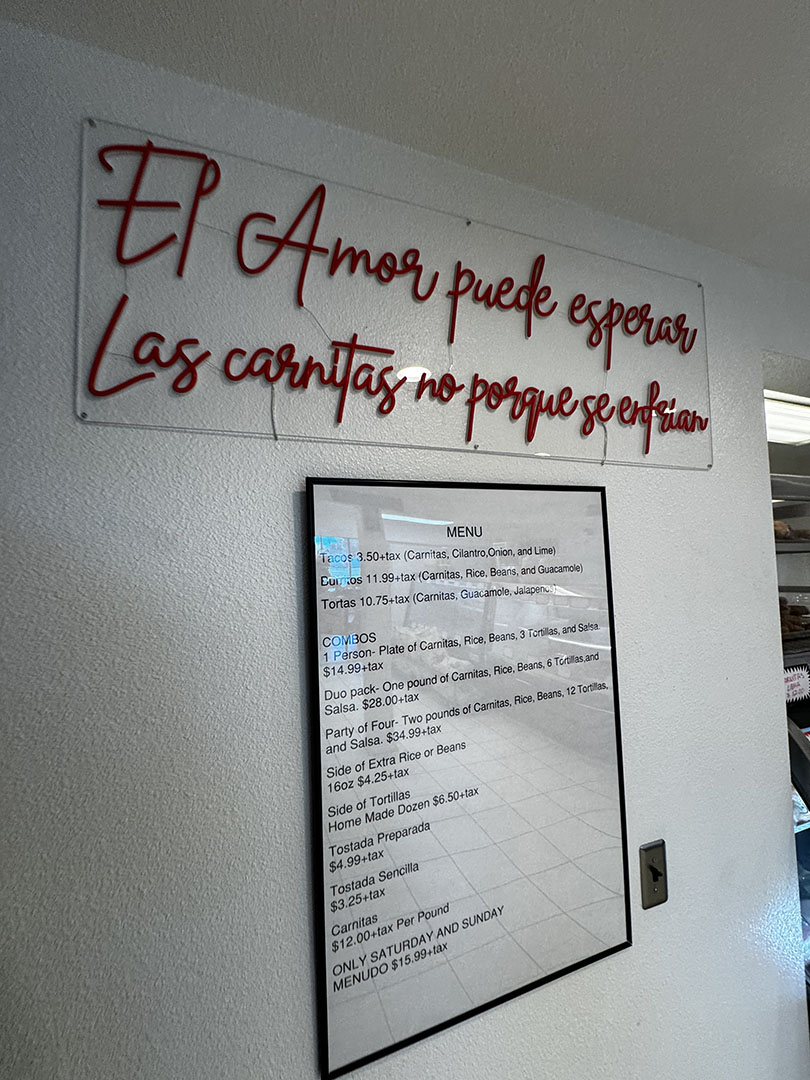 El Amor puede esperar
Las carnitas no porque se enfrian
MENU
Tacos 3.50+tax (Carnitas, Cilantro,Onion, and Lime)
Burritos 11.99+tax (Carnitas, Rice, Beans, and Guacamole)
Tortas 10.75+tax (Carnitas, Guacamole, Jalapenos)
COMBOS
1 Person- Plate of Carnitas, Rice, Beans, 3 Tortillas, and Salsa.
$14.99+tax
Duo pack- One pound of Carnitas, Rice, Beans, 6 Tortillas,and
Salsa. $28.00+tax
Party of Four- Two pounds of Carnitas, Rice, Beans, 12 Tortillas,
and Salsa. $34.99+tax
Side of Extra Rice or Beans
16oz $4.25+tax
Side of Tortillas
Home Made Dozen $6.50+tax
Tostada Preparada
$4.99+tax
Tostada Sencilla
$3.25+tax
Carnitas
$12.00+tax Per Pound
ONLY SATURDAY AND SUNDAY
MENUDO $15.99+tax